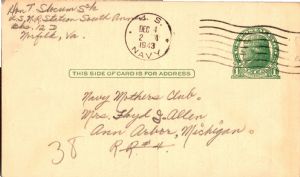 Hon T. Slocum S2c
U.S.N.R. Station South Annex
Bks. 12 3
Norfolk, Va.
U.S.
DEC 4
2
1943
NAVY
THIS SIDE OF CARD IS FOR ADDRESS
Navy Mothers Club.
Mrs. Floyd J. Allen
Ann Arbor, Michigan.
R.R.#4.
38